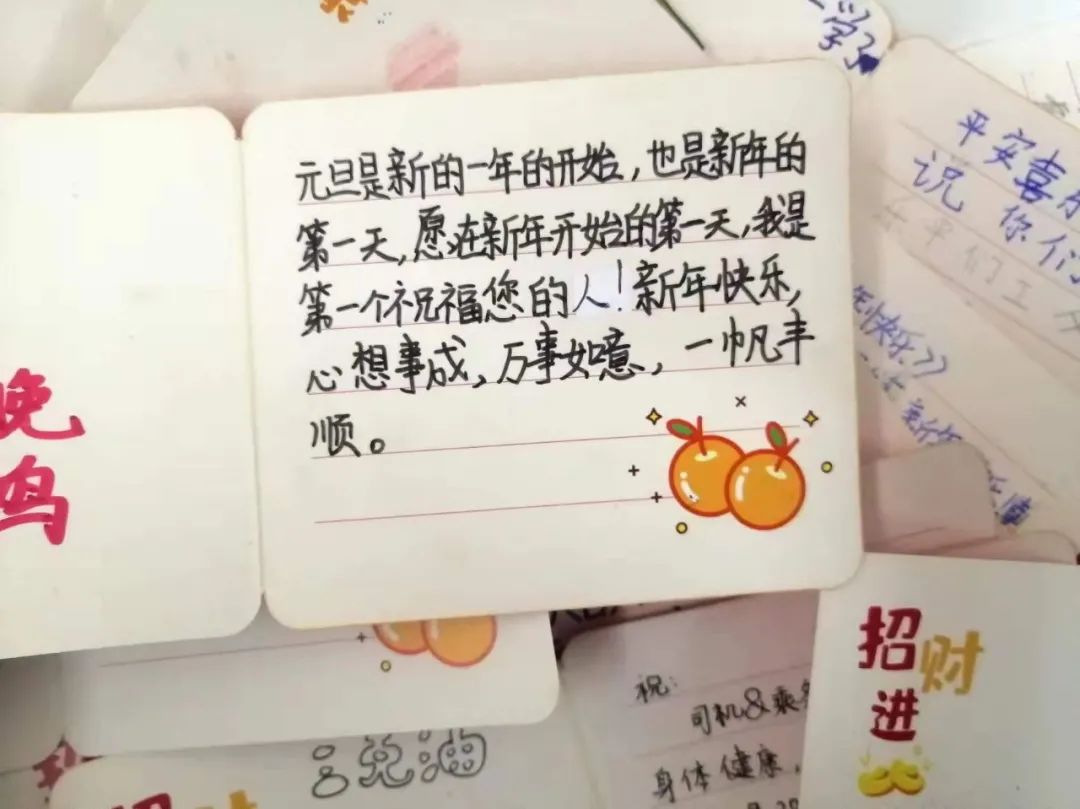 元旦是新的一年的开始，也是新年的
第一天，愿在新年开始的第一天，我是
第一个祝福您的人！新年快乐，
心想事成，万事如意，一帆丰
顺。
晚
鸣
平安喜乐
说你们
年快乐
招财
进
祝：
司机&乘客
身体健康，
加油
招财